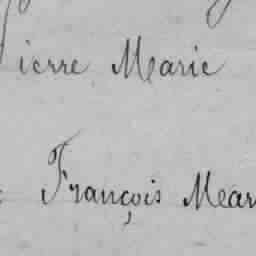 Pierre Marie
François Mear